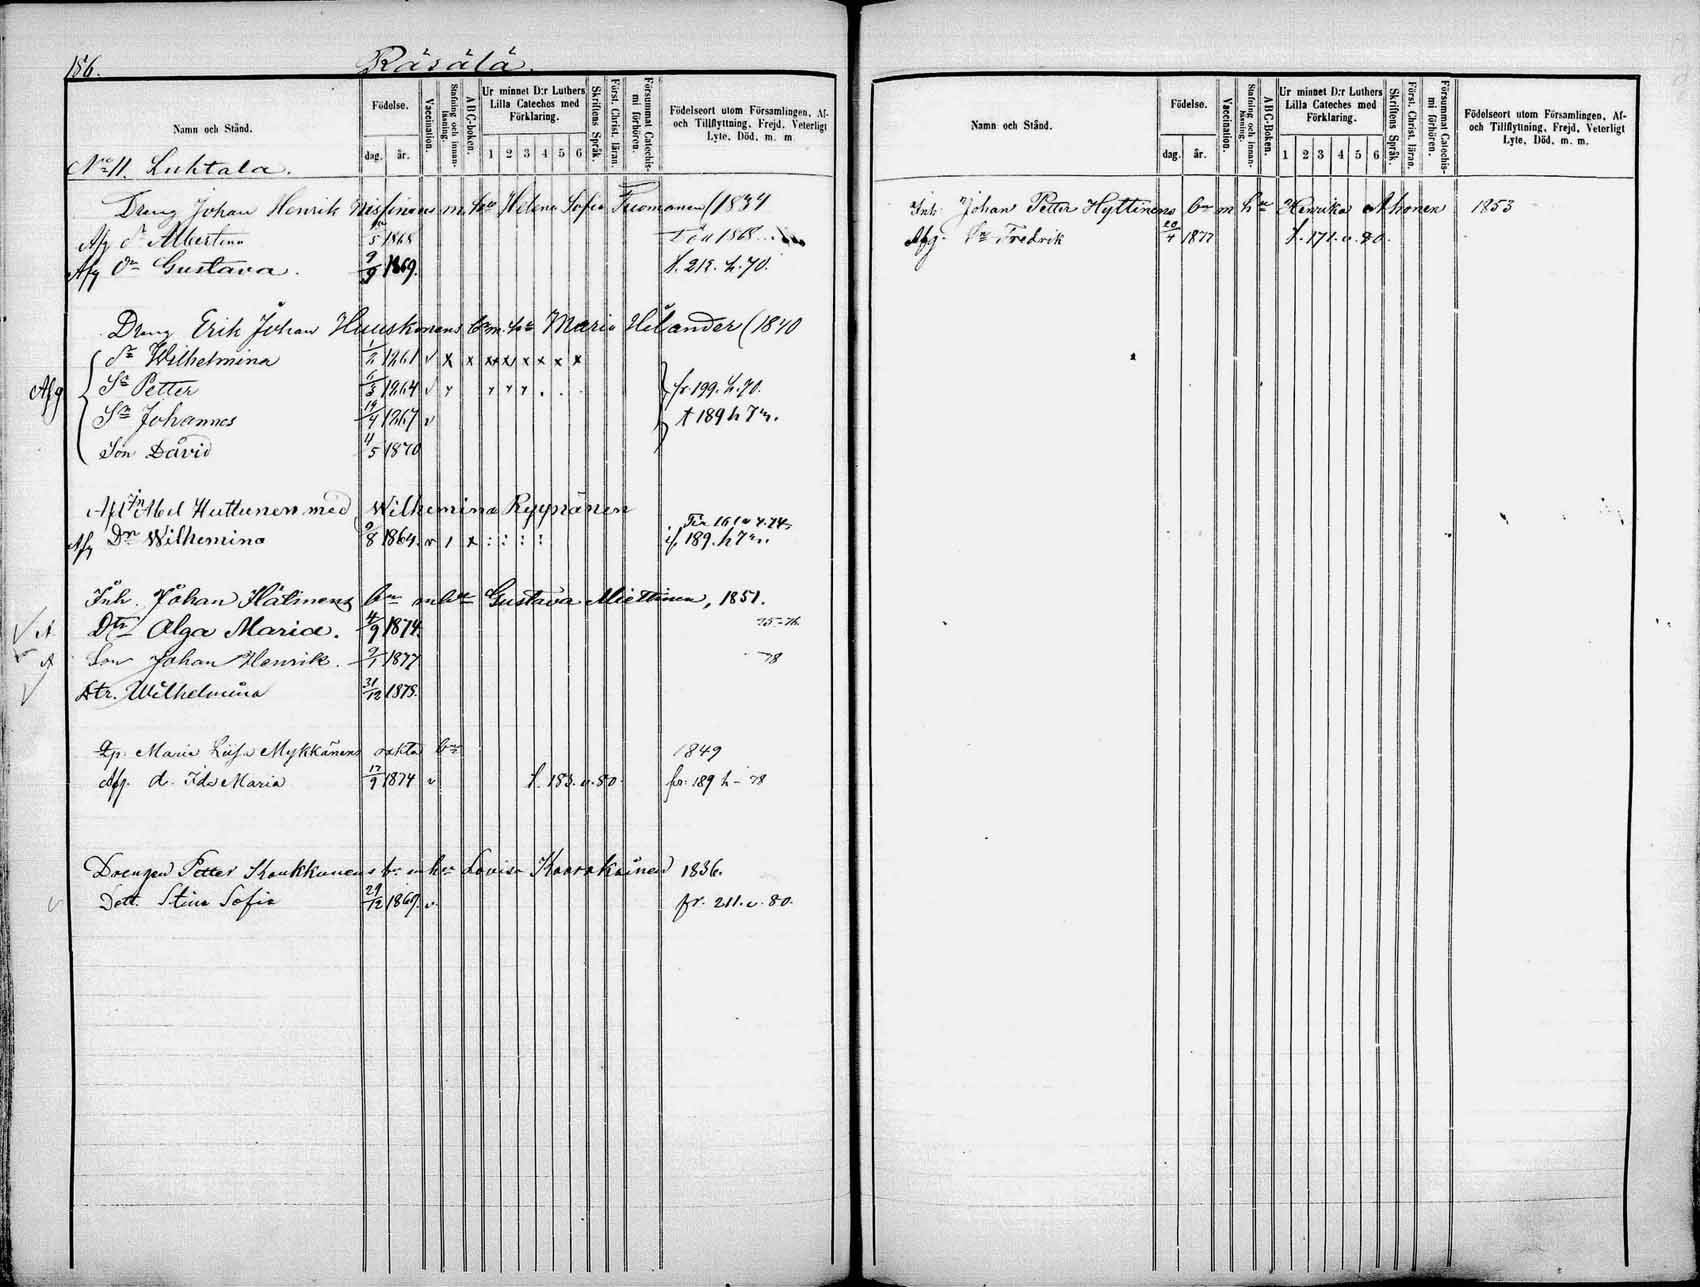 156. Räsälä.
Namn och Stånd.
Födelse.
dag. år.
Vaccination.
Stafning och innanläsning.
ABC-boken.
Ur minnet D:r Luthers Lilla Cateches med Förklaring.
1 2 3 4 5 6
Skriftens Språk.
Först. Christ. läran.
Försummat Catechismi förhören.
Födelseort utom Församlingen, Af- och Tillflyttning, Frejd, Veterligt Lyte, Död. m. m.
No 11. Luhtala.
Dreng Johan Henrik Nissinens m hu Helena Sofia Tuomanen (1834
Afg Albertina 5 1868
Afg Dr Gustava. 9/9 1869. f. 212. h. 70.
Dreng Erik Johan Huuskonens bn m. hu Maria Hålander (1840
Afg
Dr Wilhelmina 1/2 1861 v x x x x x x x x
Sn Petter 6/3 1864 v fr. 199. h. 70.
Sn Johannes 19/4 1867 v t 189 h
Son David 4/5 1870
Abel Huttunen med Wilhemina Ryynänen
Afg Dr Wilhemina 9/8 1864. 189. h
Inh. Johan Hälinens bn m hu Gustava Miettinen, 1851.
A Dtr Olga Maria. 4/9 1874. 75-76
A Son Johan Henrik. 9/1 1877 78
Dtr. Wilhelmina 31/12 1878.
Maria Lisa Mykkänens oäkta bn 1849
Afg. d. Ida Maria 17/9 1874 v f. 183. v. 80. fr. 189 h - 78
Drengen Petter Kaukkunens bn m hu Lovisa Kaarakainen 1836.
Dott. Stina Sofia 29/12 1867. v. fr. 211. v. 80.
Namn och Stånd.
Födelse.
dag. år.
Vaccination.
Stafning och innanläsning.
ABC-Boken.
Ur minnet D:r Luthers Lilla Cateches med Förklaring.
1 2 3 4 5 6
Skriftens Språk.
Först. Christ. läran.
Försummat Catechismi förhören.
Födelseort utom Församlingen, Af- och Tillflyttning, Frejd, Veterligt Lyte, Död, m. m.
Inh Johan Petter Hyttinens bn m hu Henrika Ahonen 1853
Afg. Sn Fredrik 20/4 1877 f. 171. v. 80.